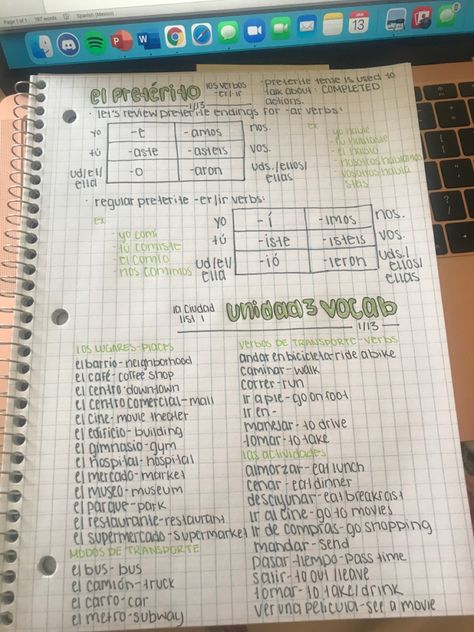 Page 1 of 1 197 words Spanish (Mexico)
JAN
13
el pretérito los verbos
-er/-ir
1/13
preterite tense is used to
talk about: COMPLETED
actions.
· let's review preterite endings for -ar verbs:
yo -é -amos nos.
tú -aste -asteis vos.
ud/el/
ella -ó -aron uds./ellos/
ellas
ex
- yo hablé
- tú hablaste
- el habló
- nosotros hablamos
· regular preterite -er/ir verbs:
ex
- yo comí
- tú comiste
- el comió
- nos comimos
yo -í -imos nos.
tú -iste -isteis vos.
ud/el/
ella -ió -ieron uds./
ellos/
ellas
la ciudad
list 1
unidad 3 vocab
1/13
los lugares-places
el barrio-neighborhood
el café-coffee shop
el centro-downtown
el centro comercial-mall
el cine-movie theater
el edificio-building
el gimnasio-gym
el hospital-hospital
el mercado-market
el museo-museum
el parque-park
el restaurante-restaurant
el supermercado-supermarket
modos de transporte
el bus-bus
el camión-truck
el carro-car
el metro-subway
verbos de transporte-verbs
andar en bicicleta-ride a bike
caminar-walk
correr-run
ir a pie-go on foot
ir en-
manejar-to drive
tomar-to take
las actividades
almorzar-eat lunch
cenar-eat dinner
desayunar-eat breakfast
ir al cine-go to movies
ir de compras-go shopping
mandar-send
pasar-tiempo-pass time
salir-to out/leave
tomar-to take/drink
ver una película-see a movie